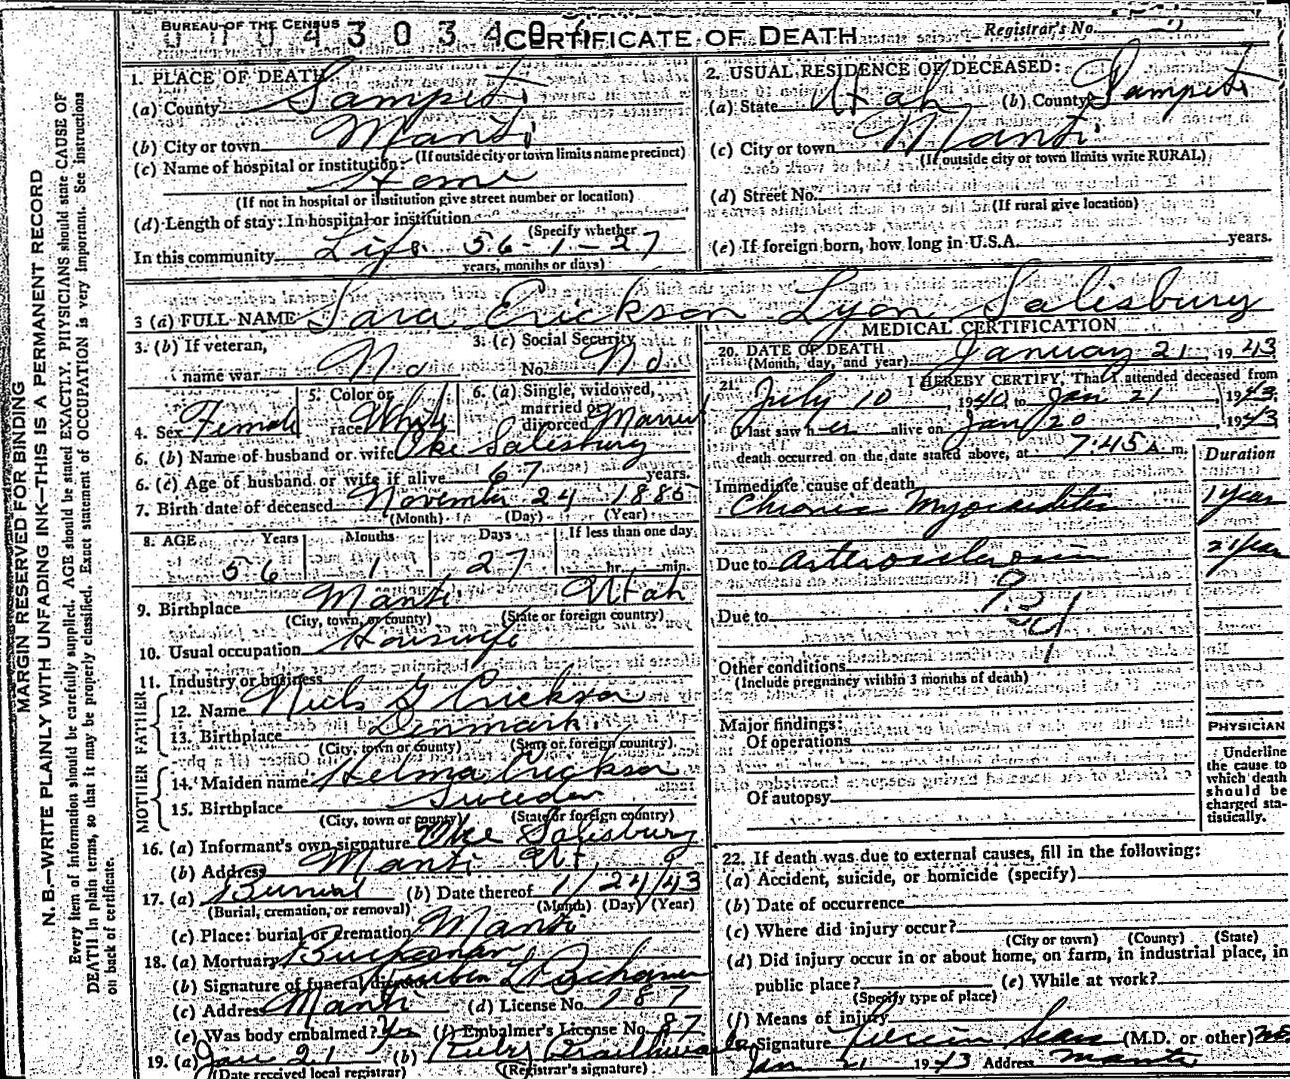 BUREAU OF THE CENSUS
CERTIFICATE OF DEATH
Registrar's No.
MARGIN RESERVED FOR BINDING
N. B.—WRITE PLAINLY WITH UNFADING INK—THIS IS A PERMANENT RECORD
Every item of information should be carefully supplied. AGE should be stated EXACTLY. PHYSICIANS should state CAUSE OF
DEATH in plain terms, so that it may be properly classified. Exact statement of OCCUPATION is very important. See instructions
on back of certificate.
1. PLACE OF DEATH
(a) County Sanpete
(b) City or town Manti
(If outside city or town limits name precinct)
(c) Name of hospital or institution:
Home
(If not in hospital or institution give street number or location)
(d) Length of stay: In hospital or institution
(Specify whether
In this community Life 56-1-27
years, months or days)
2. USUAL RESIDENCE OF DECEASED:
(a) State Utah (b) County Sanpete
(c) City or town Manti
(If outside city or town limits write RURAL)
(d) Street No.
(If rural give location)
(e) If foreign born, how long in U.S.A. years.
3 (a) FULL NAME Sara Erickson Lyon Salisbury
3. (b) If veteran,
name war No
3. (c) Social Security
No. No.
4. Sex Female
5. Color or
race White
6. (a) Single, widowed,
married or
divorced Married
6. (b) Name of husband or wife Oke Salisbury
6. (c) Age of husband or wife if alive 67 years.
7. Birth date of deceased November 24 1886
(Month) (Day) (Year)
8. AGE Years Months Days If less than one day
56 1 27 hr. min.
9. Birthplace Manti Utah
(City, town, or county) (State or foreign country)
10. Usual occupation Housewife
11. Industry or business
FATHER
12. Name Niels Erickson
13. Birthplace Denmark
(City, town or county) (State or foreign country)
MOTHER
14. Maiden name Helma Erickson
15. Birthplace Sweden
(City, town or county) (State or foreign country)
16. (a) Informant's own signature Oke Salisbury
(b) Address Manti Ut.
17. (a) Burial (b) Date thereof 1/24/43
(Burial, cremation, or removal) (Month) (Day) (Year)
(c) Place: burial or cremation Manti
18. (a) Mortuary Buchanan
(b) Signature of funeral director
(c) Address Manti (d) License No. 287
(e) Was body embalmed? Yes (f) Embalmer's License No. 87
19. (a) Jan 21 (b) Ruby
(Date received local registrar) (Registrar's signature)
MEDICAL CERTIFICATION
20. DATE OF DEATH January 21 1943
(Month, day, and year)
21. I HEREBY CERTIFY, That I attended deceased from
July 10 1940 to Jan 21 1943
I last saw her alive on Jan 20 1943
death occurred on the date stated above, at 7:45 A. m.
Duration
Immediate cause of death
Chronic Myocarditis 1 year
Due to arterosclerosis 2 year
Due to
Other conditions
(Include pregnancy within 3 months of death)
Major findings:
Of operations
Of autopsy
PHYSICIAN
Underline
the cause to
which death
should be
charged sta-
tistically.
22. If death was due to external causes, fill in the following:
(a) Accident, suicide, or homicide (specify)
(b) Date of occurrence
(c) Where did injury occur?
(City or town) (County) (State)
(d) Did injury occur in or about home, on farm, in industrial place, in
public place? (e) While at work?
(Specify type of place)
(f) Means of injury
Signature Sears (M.D. or other)
Jan 21 1943 Address Manti